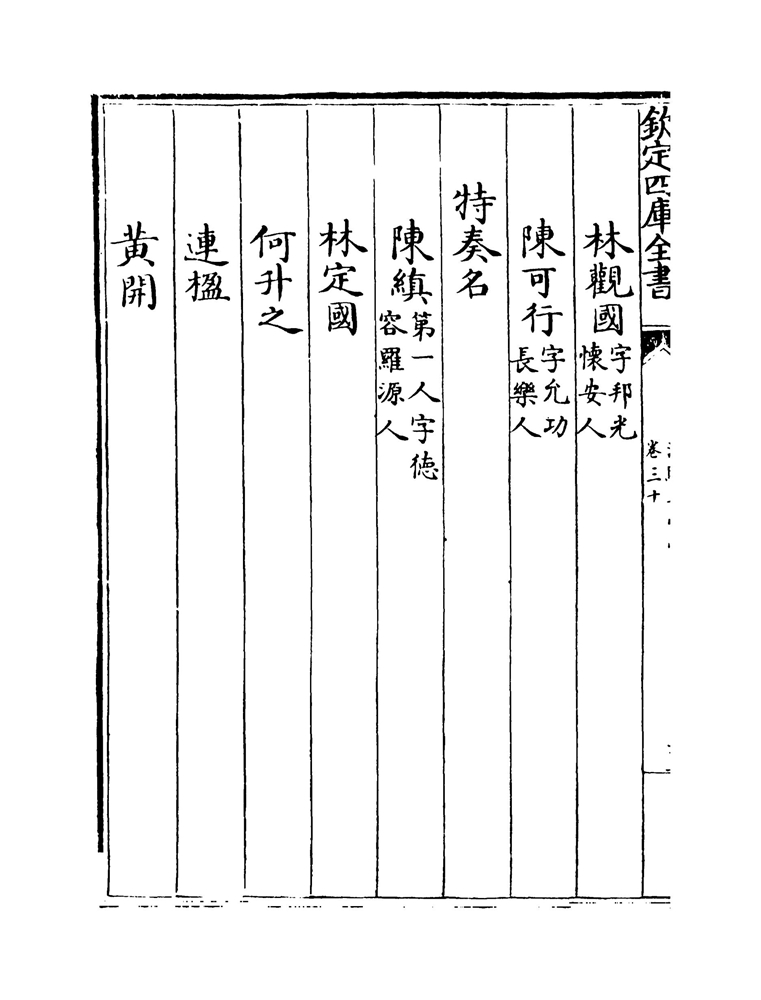 欽定四庫全書
卷三十
林觀國字邦光懷安人
陳可行字允功長樂人
特奏名
陳縝第一人字德容羅源人
林定國
何升之
連楹
黄開